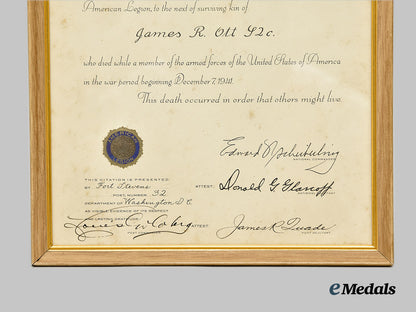 American Legion, to the next of surviving kin of
James R. Ott S2c.
who died while a member of the armed forces of the United States of America
in the war period beginning December 7, 1941.
This death occurred in order that others might live.
Edward N. Scheiberling
NATIONAL COMMANDER
THIS CITATION IS PRESENTED
BY Fort Stevens
POST, NUMBER 32
DEPARTMENT OF Washington D.C.
AS VISIBLE EVIDENCE OF ITS RESPECT
FOR LASTING DEVOTION
ATTEST: Donald G. Glascoff
NATIONAL ADJUTANT
POST COMMANDER
ATTEST James R. Quade
POST ADJUTANT
eMedals